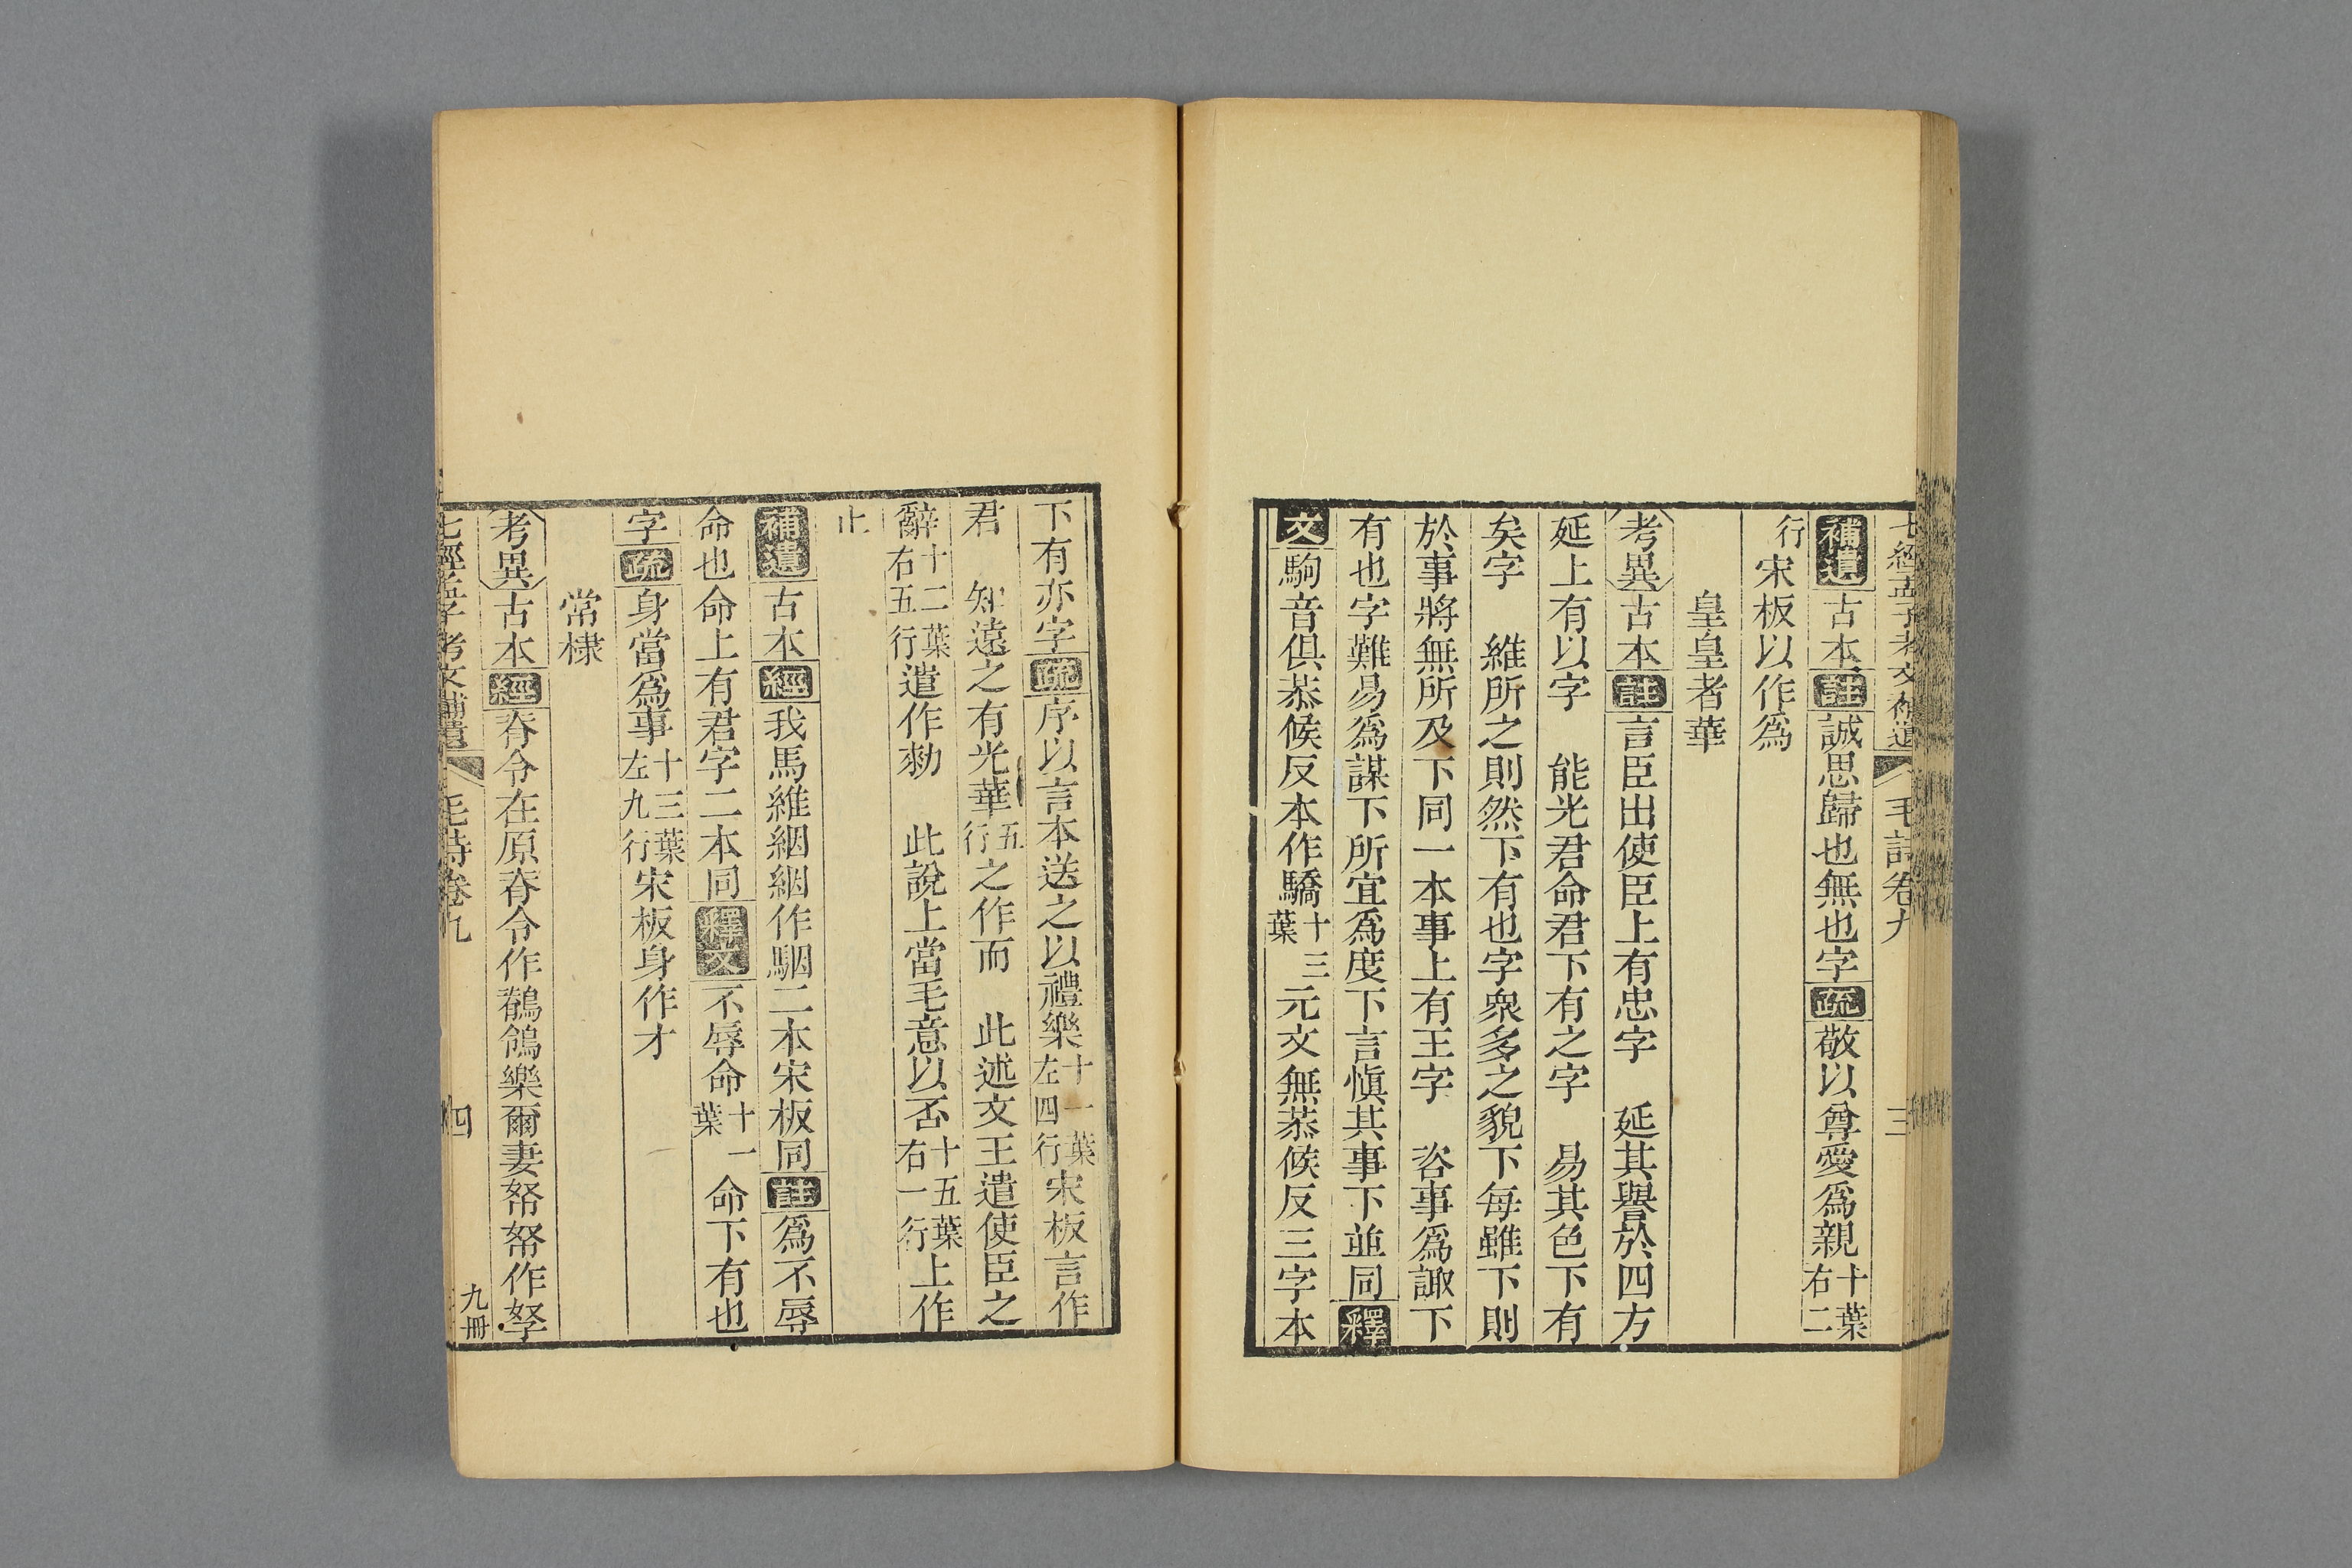 七經孟子考文補遺 毛詩卷九 三
補遺古本註誠思歸也無也字疏敬以尊愛爲親十葉右二
行宋板以作爲
皇皇者華
考異古本註言臣出使臣上有忠字 延其譽於四方
延上有以字 能光君命君下有之字 易其色下有
矣字 維所之則然下有也字衆多之貌下每雖下則
於事將無所及下同一本事上有王字 咨事爲諏下
有也字難易爲謀下所宜爲度下言愼其事下並同釋
文駒音俱恭候反本作驕十三葉元文無恭候反三字本
下有亦字疏序以言本送之以禮樂十一葉左四行宋板言作
君 知遠之有光華五行之作而 此述文王遣使臣之
辭十二葉右五行遣作勑 此說上當毛意以否十五葉右一行上作
止
補遺古本經我馬維絪絪作駰二本宋板同註爲不辱
命也命上有君字二本同釋文不辱命十一葉命下有也
字疏身當爲事十三葉左九行宋板身作才
常棣
考異古本經脊令在原脊令作鶺鴒樂爾妻帑帑作孥
七經孟子考文補遺 毛詩卷九 四 九冊